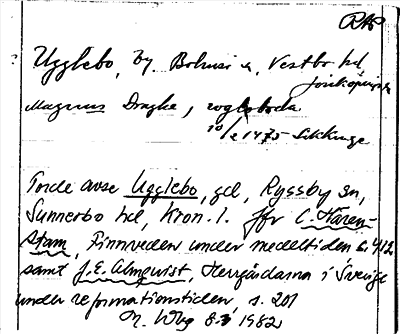 RAP
Ugglebo, by, Bolmsö sn, Vestbo hd
Jönköpings
Magnus Dragke,
10/2 1475
Torde avse Ugglebo, gd, Ryssby sn,
Sunnerbo hd, Kron. l. Jfr C. Håren-
stam, Finnveden under medeltiden s. 412
samt J. E. Almquist, Herrgårdarna i Sverige
under reformationstiden, s. 201
8.3 1982